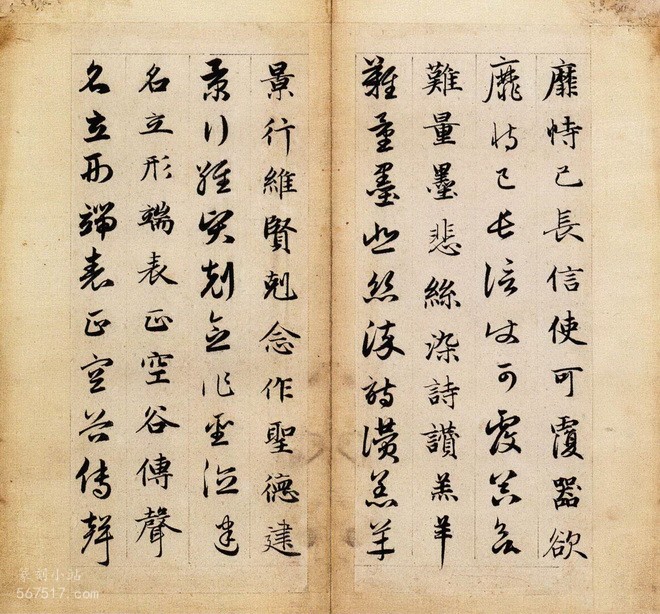 靡恃己長信使可覆器欲
靡恃己長信使可覆器欲
難量墨悲絲染詩讚羔羊
難量墨悲絲染詩讚羔羊
景行維賢剋念作聖德建
景行維賢剋念作聖德建
名立形端表正空谷傳聲
名立形端表正空谷傳聲
篆刻小站
567517.com